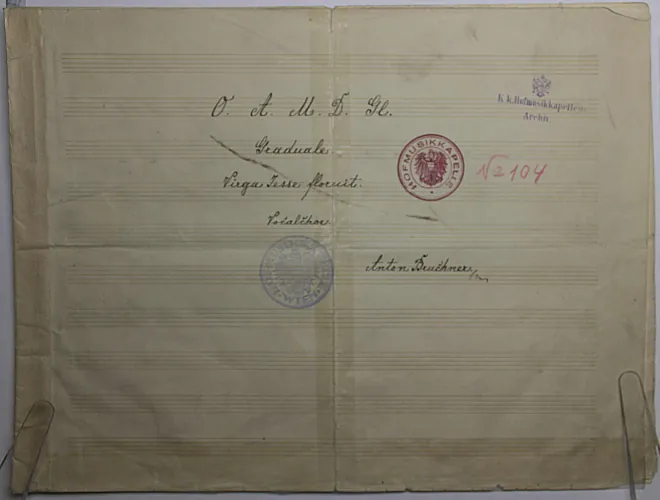 O. A. M. D. Gl.
Graduale.
Virga Jesse floruit.
Vocalchor
Anton Bruckner
HOFMUSIKKAPELLE
№ 104
K.k.Hofmusikkapellen-
Archiv
WIEN